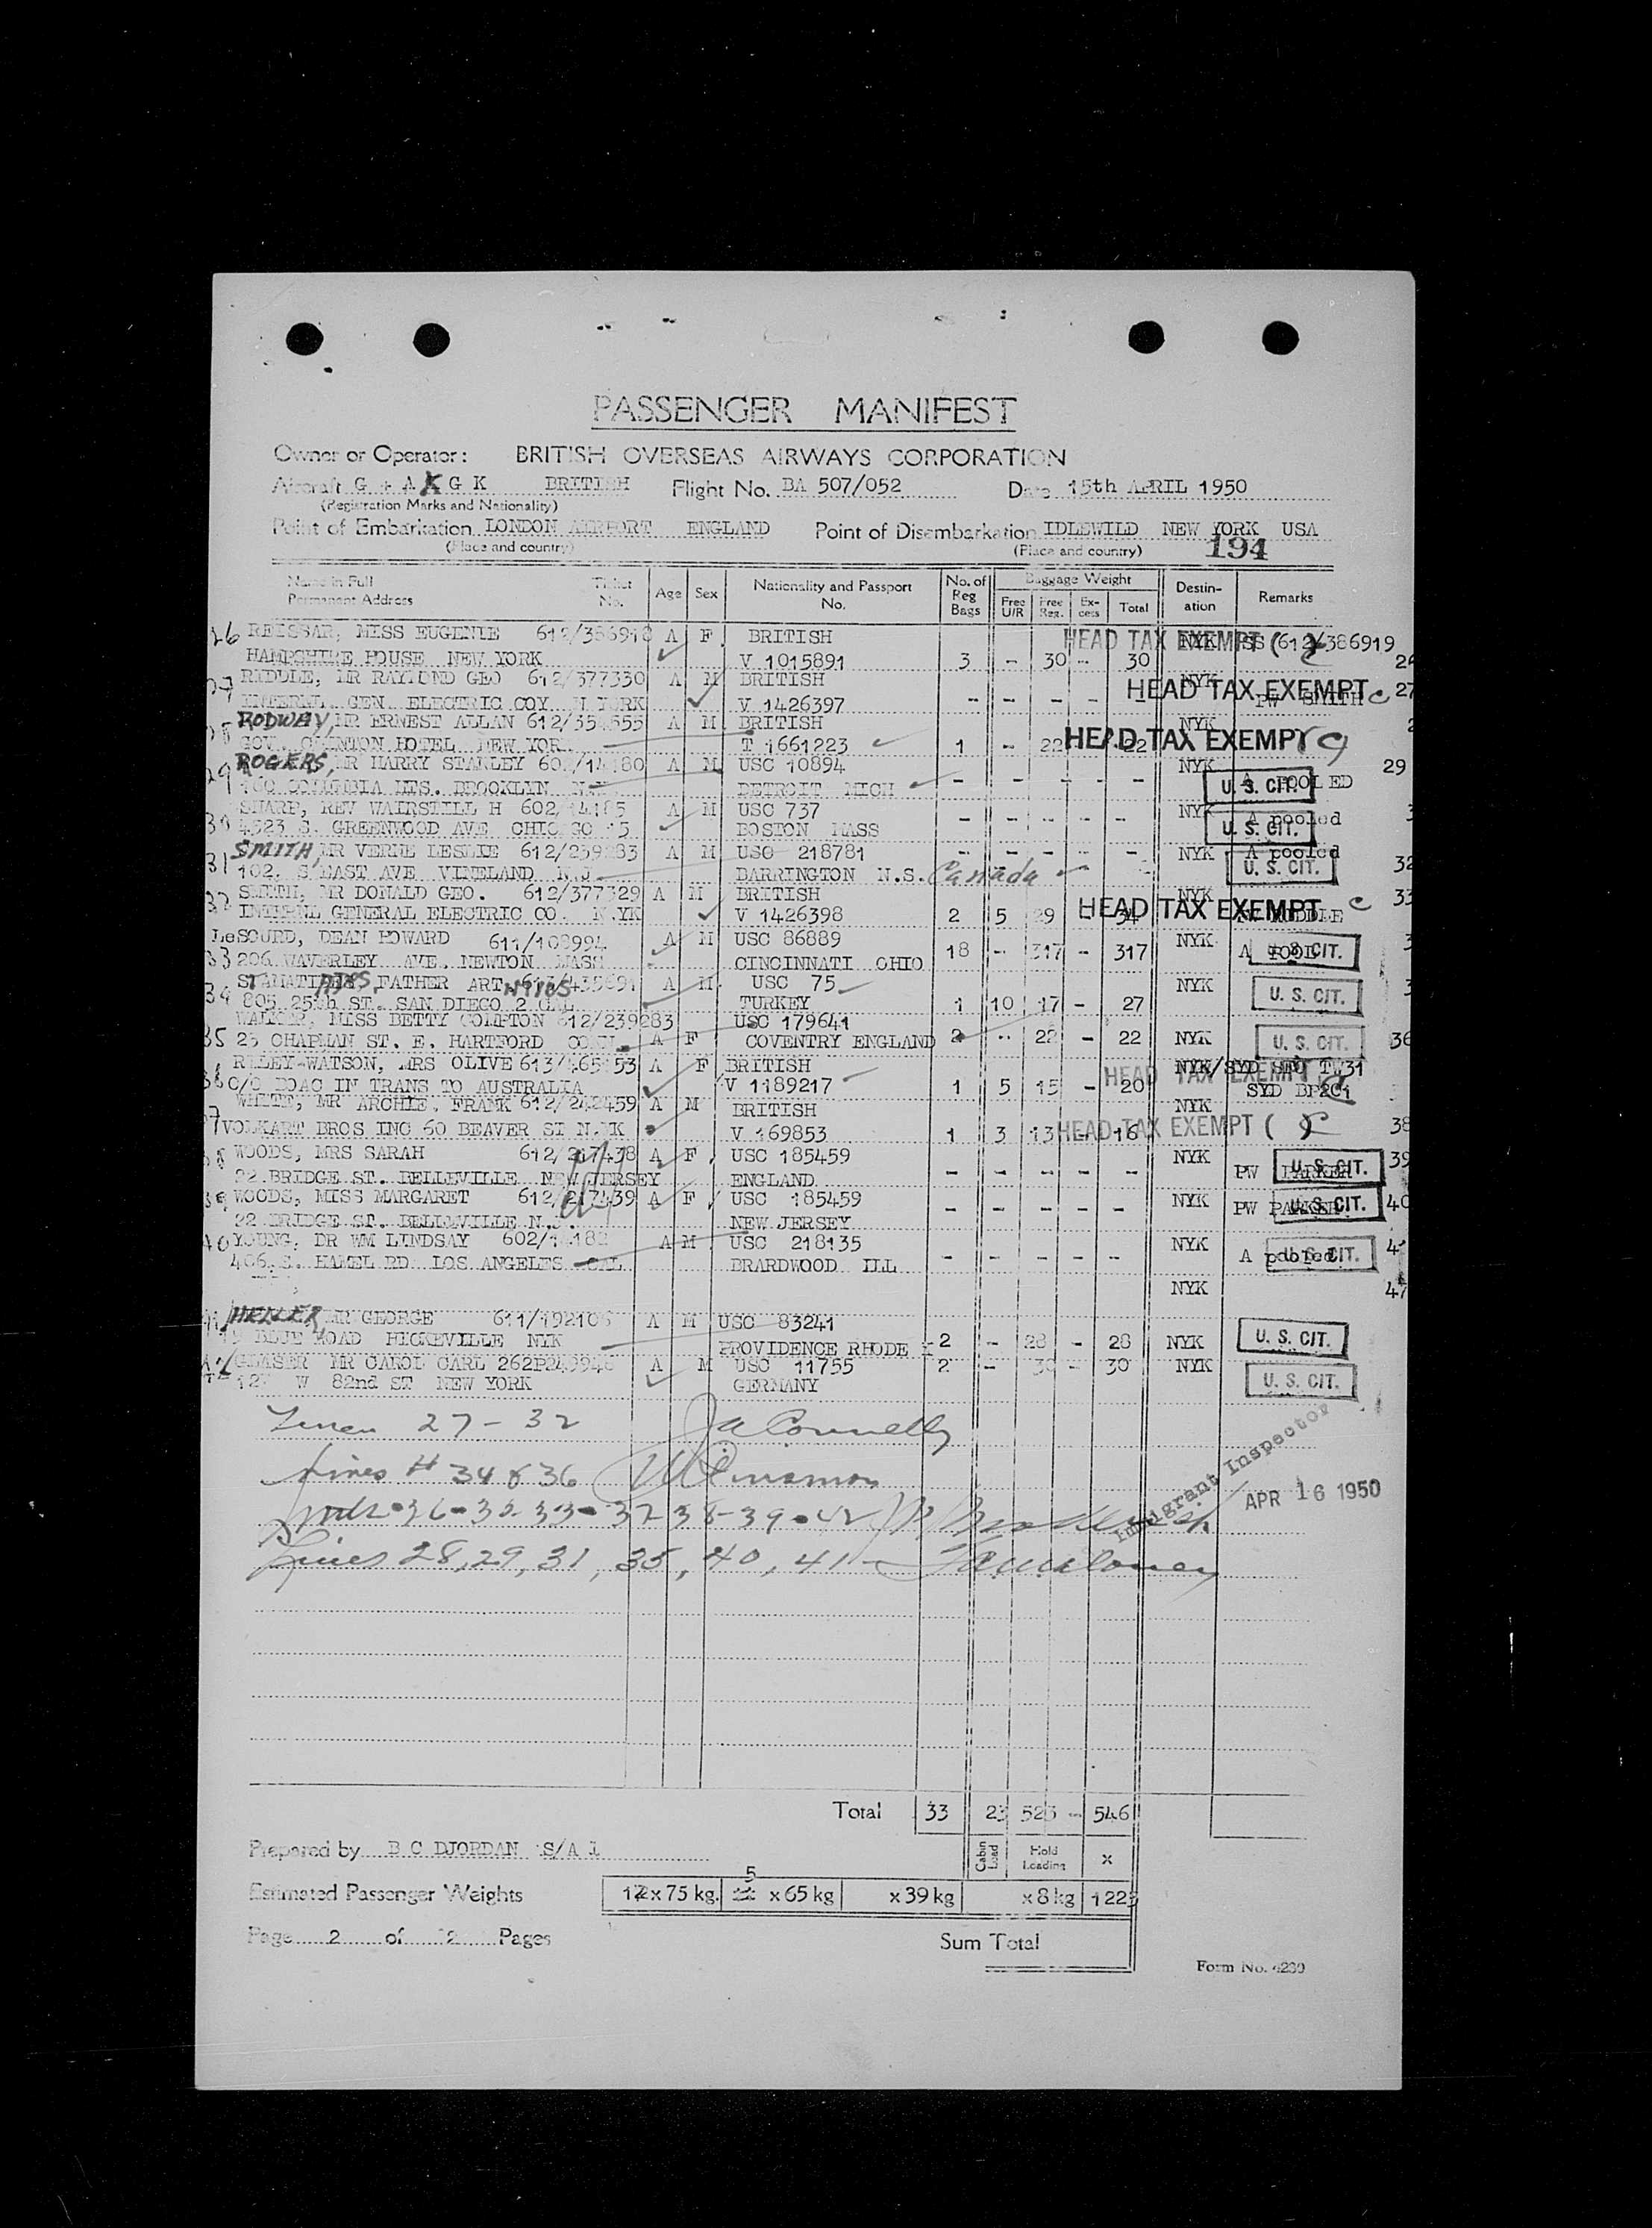 PASSENGER MANIFEST
Owner or Operator: BRITISH OVERSEAS AIRWAYS CORPORATION
Aircraft G - A K G K BRITISH Flight No. BA 507/052 Date 15th APRIL 1950
(Registration Marks and Nationality)
Point of Embarkation LONDON AIRPORT ENGLAND Point of Disembarkation IDLEWILD NEW YORK USA
(Place and country) (Place and country) 194
Name in Full Ticket Age Sex Nationality and Passport No. of Baggage Weight Destin- Remarks
Permanent Address No. No. Reg Bags Free U/R Free Reg. Ex-cess Total ation
26 REISSAR, MISS EUGENIE A F BRITISH HEAD TAX EXEMPT ( NYK 612/386919
HAMPSHIRE HOUSE NEW YORK V 1015891 3 - 30 - 30
27 RIDDLE, MR RAYMOND GEO 612/377330 A M BRITISH NYK HEAD TAX EXEMPT C 27
INTERNL GEN ELECTRIC COY N YORK V 1426397 - - - - - PW SMITH
RODWAY, MR ERNEST ALLAN A M BRITISH NYK
GOV. CLINTON HOTEL NEW YORK T 1661223 1 - 22 22 HEAD TAX EXEMPT
29 ROGERS, MR HARRY STANLEY A M USC 10894 NYK 29
BROOKLYN DETROIT MICH - - - - - U. S. CIT. A POOLED
SHARP, REV WAIRSTILL H A M USC 737 NYK A pooled
4523 S. GREENWOOD AVE CHICAGO 15 BOSTON MASS - - - - - U. S. CIT.
31 SMITH, MR VERNE LESLIE A M USC 218781 - - - - - NYK A pooled
102. S EAST AVE VINELAND N.J BARRINGTON N.S. Canada U. S. CIT. 32
32 SMITH, MR DONALD GEO. 612/377329 A M BRITISH NYK C 33
INTERNL GENERAL ELECTRIC CO. N.YK V 1426398 2 5 29 - 34 HEAD TAX EXEMPT RIDDLE
LeSOURD, DEAN HOWARD 611/108994 A M USC 86889 18 - 317 - 317 NYK A POOL U. S. CIT.
33 206 WAVERLEY AVE. NEWTON MASS CINCINNATI OHIO
FATHER A M USC 75 NYK
34 805 25th ST. SAN DIEGO 2 CAL TURKEY 1 10 17 - 27 U. S. CIT.
MISS BETTY COMPTON 612/239283 USC 179641
35 25 CHAPMAN ST. E. HARTFORD CONN. A F COVENTRY ENGLAND 2 - 22 - 22 NYK U. S. CIT. 36
RILEY-WATSON, MRS OLIVE A F BRITISH NYK/SYD TW31
36 C/O BOAC IN TRANS TO AUSTRALIA V 1189217 1 5 15 - 20 HEAD TAX EXEMPT SYD
WHITE, MR ARCHIE. FRANK 612/242459 A M BRITISH NYK
VOLKART BROS INC 60 BEAVER ST N.YK V 169853 1 3 13 - 16 HEAD TAX EXEMPT ( 38
WOODS, MRS SARAH 612/217438 A F USC 185459 NYK 39
22 BRIDGE ST. BELLEVILLE NEW JERSEY ENGLAND - - - - - PW PARKER U. S. CIT.
WOODS, MISS MARGARET 612/217439 A F USC 185459 NYK PW PARKER U. S. CIT. 40
22 BRIDGE ST. BELLEVILLE N.J. NEW JERSEY - - - - -
40 YOUNG, DR WM LINDSAY A M USC 218135 NYK
406 S. HAMEL RD LOS ANGELES CAL BRARDWOOD ILL - - - - - A pooled U. S. CIT.
NYK
HELLER, MR GEORGE A M USC 83241
BLUE ROAD HICKSVILLE NYK PROVIDENCE RHODE I 2 - 28 - 28 NYK U. S. CIT.
MR CAROL CARL A M USC 11755 2 - 30 - 30 NYK
W 82nd ST NEW YORK GERMANY U. S. CIT.
Lines 27 - 32 J A Connelly
Lines # 34 & 36
Immigrant Inspector
APR 16 1950
Lines 28, 29, 31, 35, 40, 41 -
Total 33 23 523 - 546
Prepared by B C DJORDAN S/A 1 Cabin Load Hold Loading x
5
Estimated Passenger Weights 12 x 75 kg. x 65 kg x 39 kg x 8 kg 1225
Page 2 of 2 Pages Sum Total
Form No. 4280